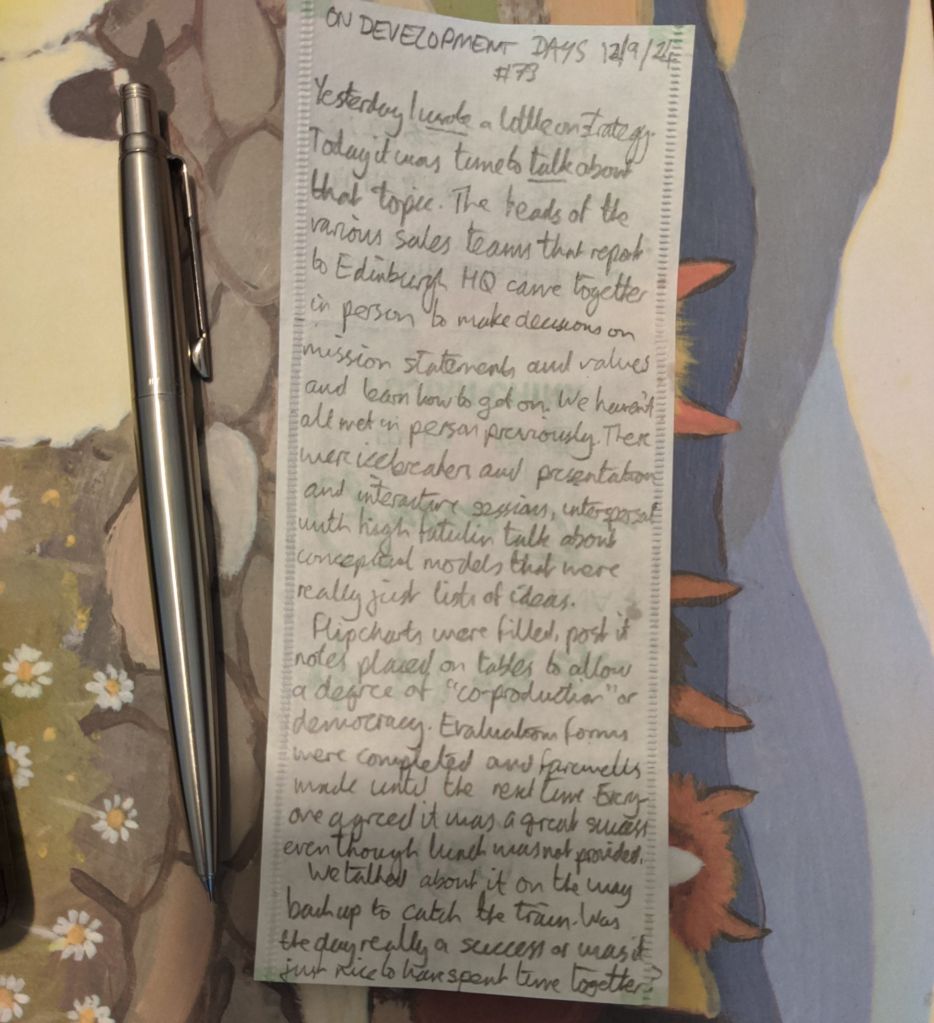 ON DEVELOPMENT DAYS 12/9/24
#73
Yesterday I wrote a little on strategy.
Today it was time to talk about
that topic. The heads of the
various sales teams that report
to Edinburgh HQ came together
in person to make decisions on
mission statements and values
and learn how to get on. We haven't
all met in person previously. There
were icebreakers and presentations
and interactive sessions, interspersed
with high falutin talk about
conceptual models that were
really just lists of ideas.
Flipcharts were filled, post it
notes placed on tables to allow
a degree of "co-production" or
democracy. Evaluation forms
were completed and farewells
made until the next time. Every-
one agreed it was a great success
even though lunch was not provided.
We talked about it on the way
back up to catch the train. Was
the day really a success or was it
just nice to have spent time together?